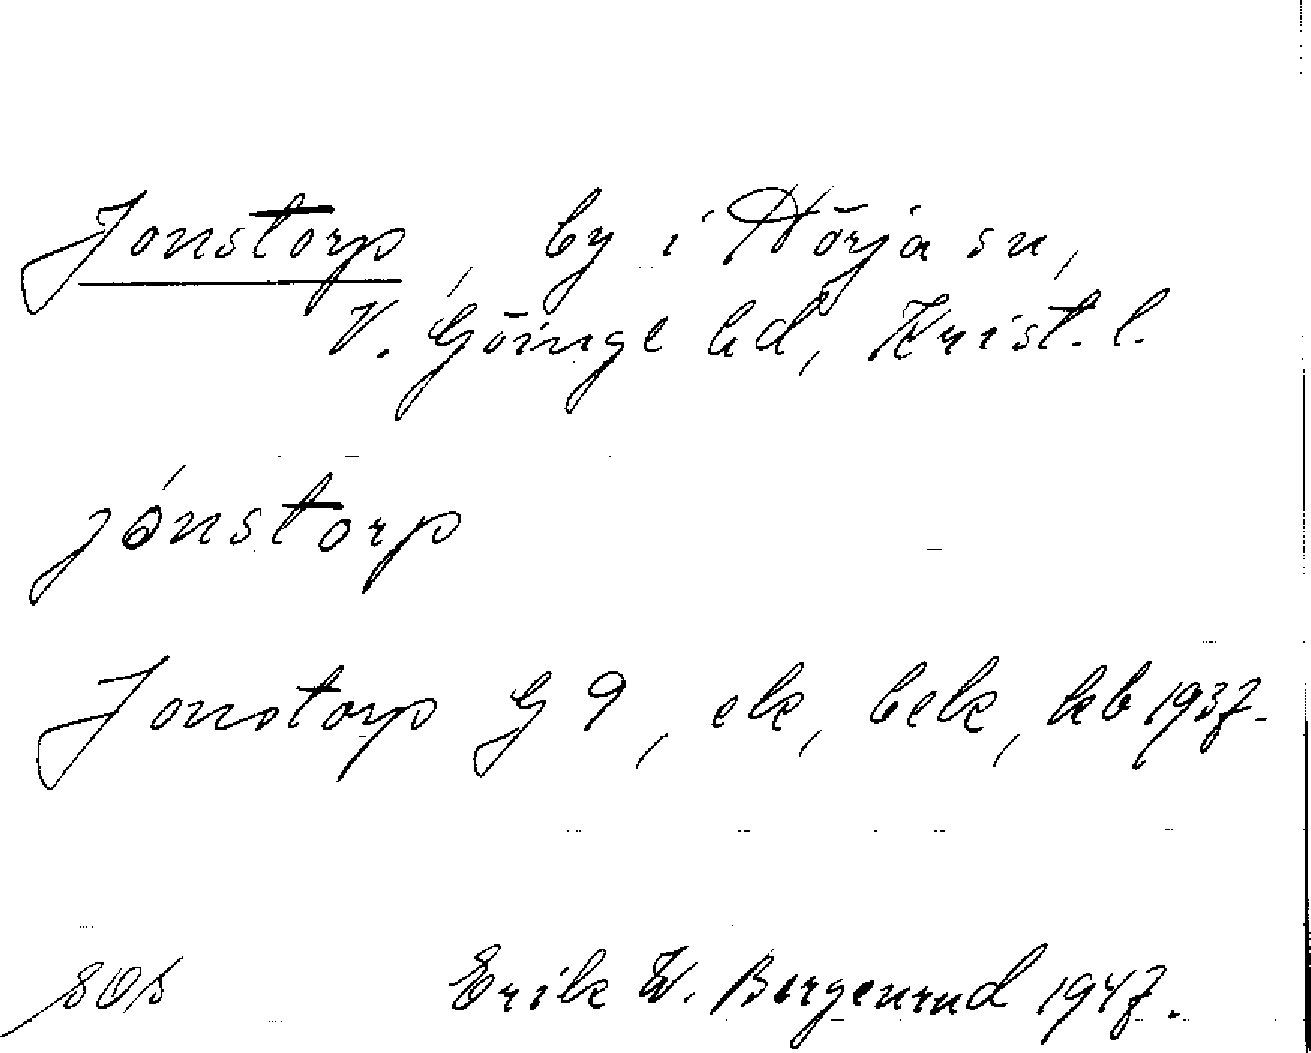 Jonstorp, by i Hörja sn,
V. Göinge hd, Krist. l.
jónstorp
Jonstorp G 9, ek, bek, kb 1937.
Erik W. 1947.